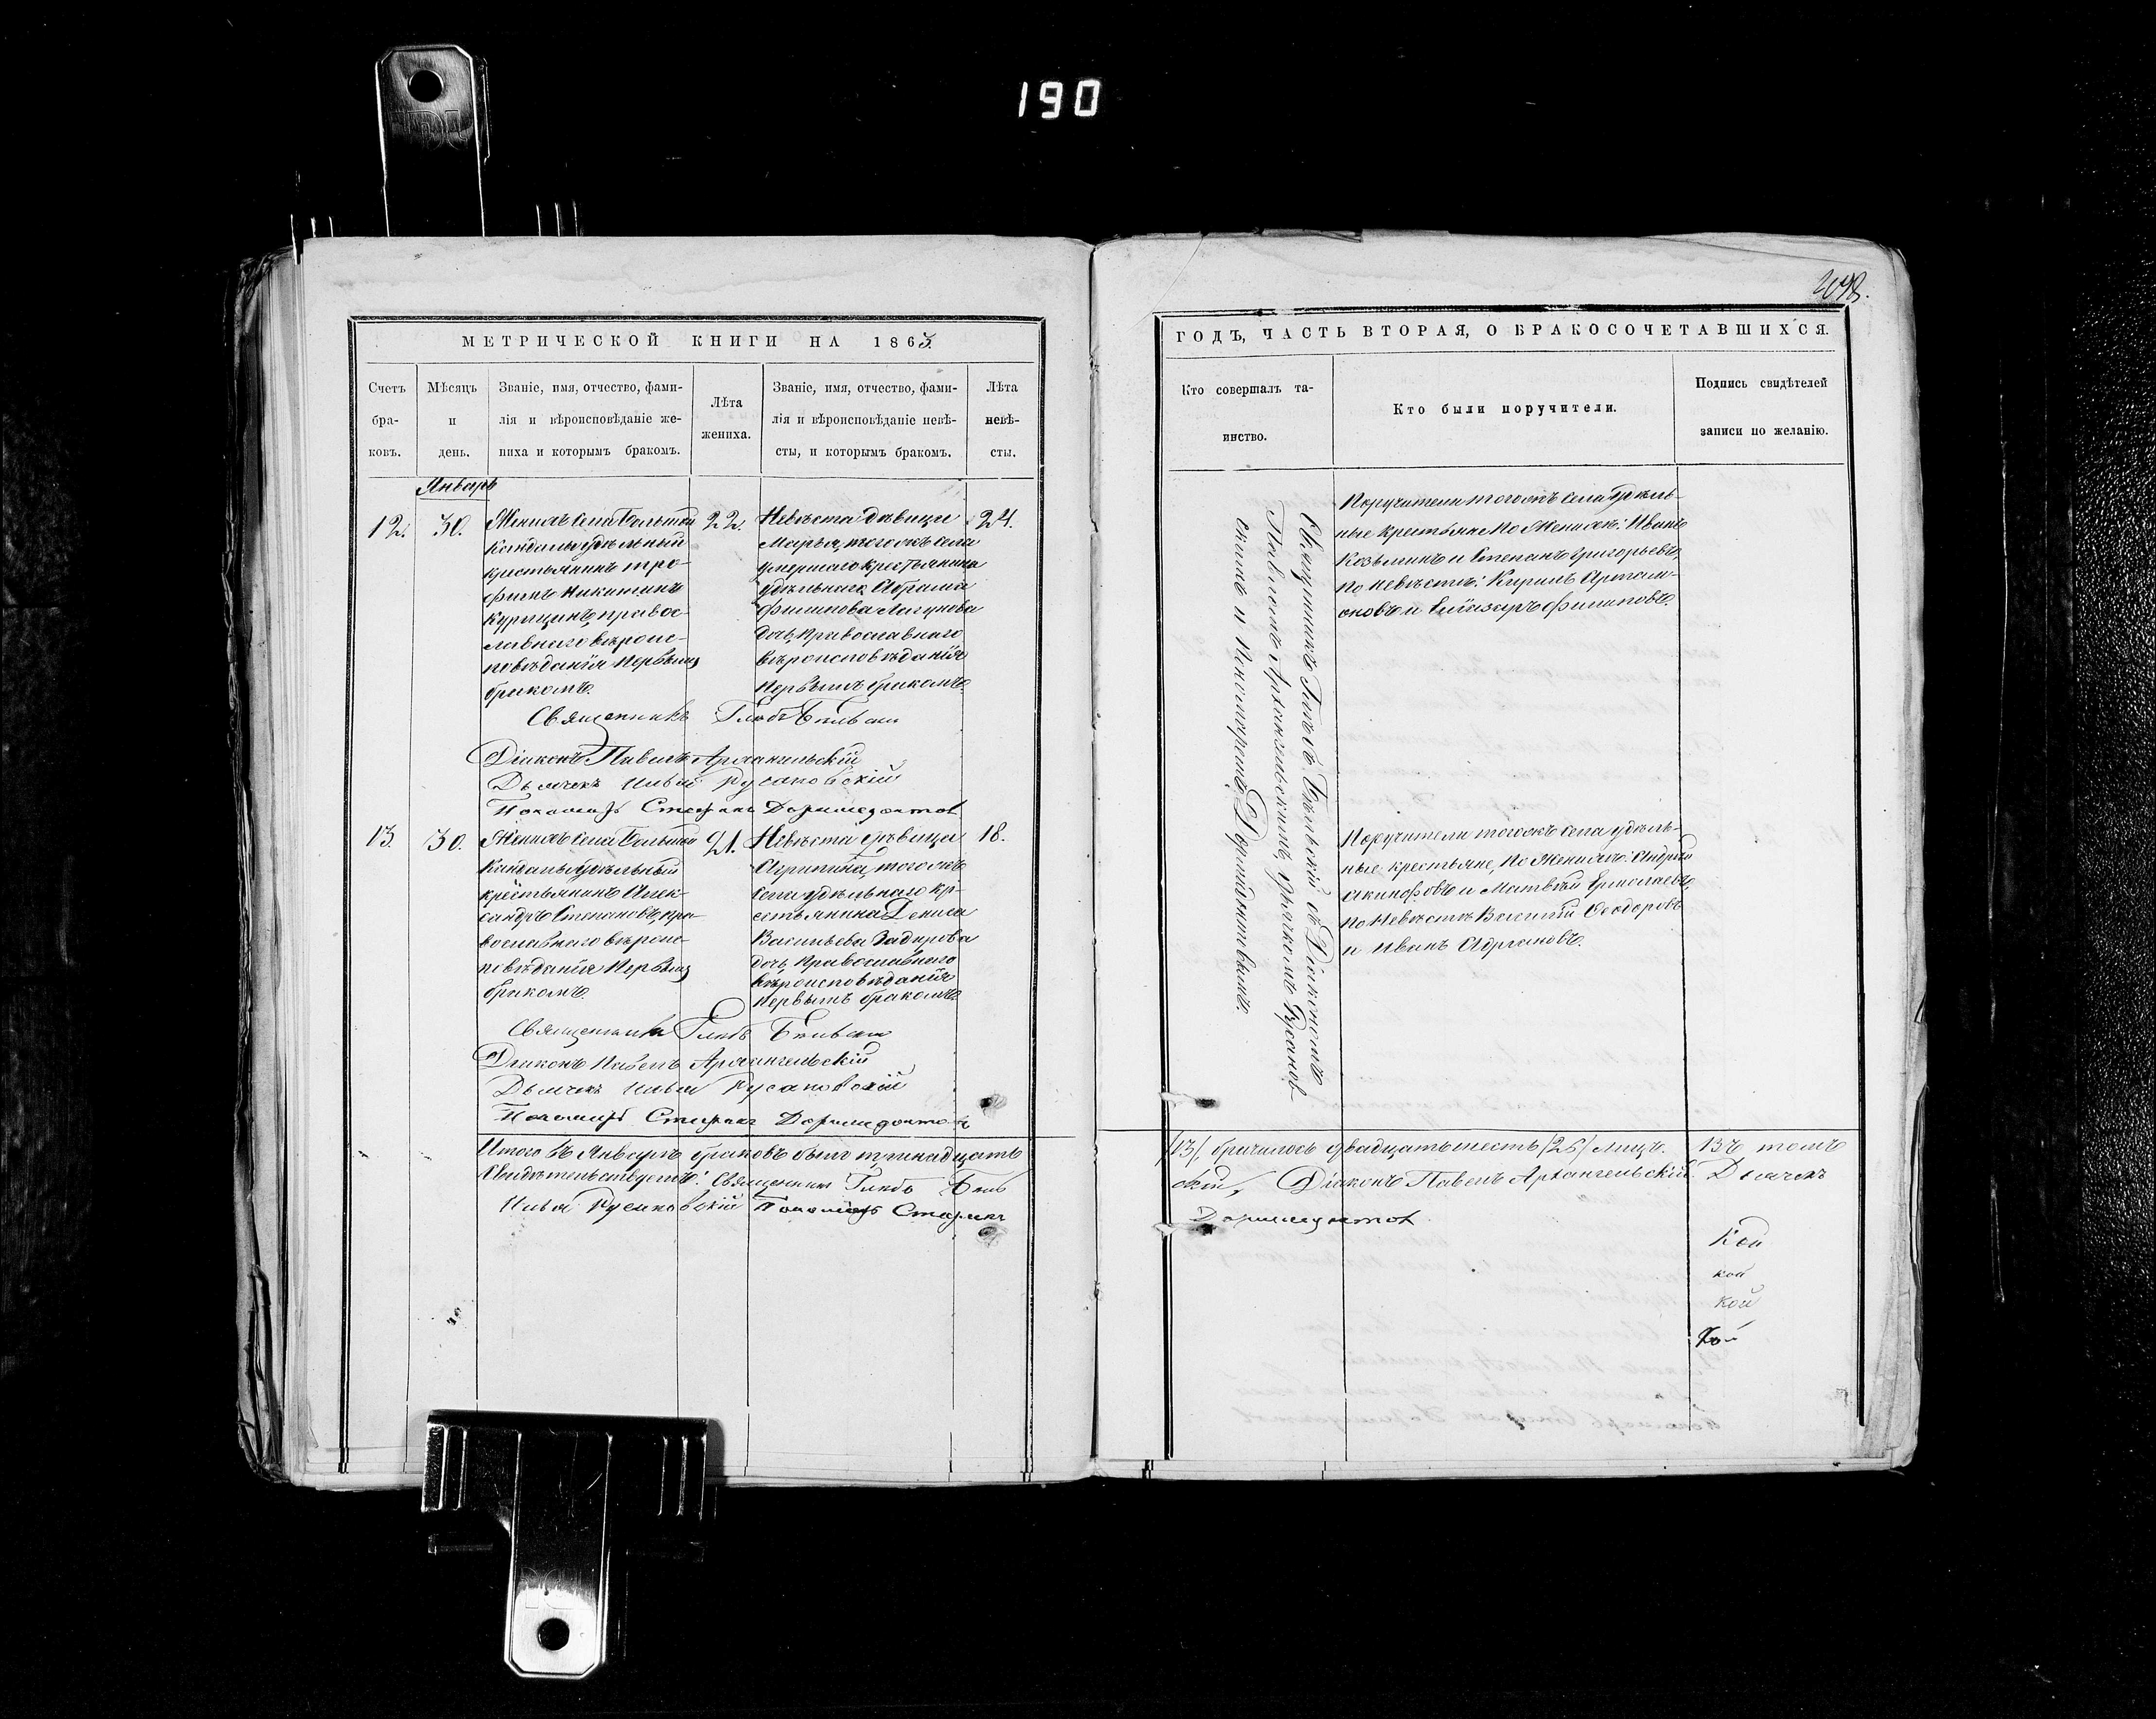 190
МЕТРИЧЕСКОЙ КНИГИ НА 1863.
Счетъ бра-ковъ.
Мѣсяцъ и день.
Званіе, имя, отчество, фами-
лія и вѣроисповѣданіе же-
ниха и которымъ бракомъ.
Лѣта
жениха.
Званіе, имя, отчество, фами-
лія и вѣроисповѣданіе невѣ-
сты, и которымъ бракомъ.
Лѣта
невѣ-
сты.
Январь
12.
30.
Женихъ села Большой
Кандалы удѣльный
крестьянинъ Тро-
фимъ Никитинъ
Курицинъ, правос-
лавнаго вѣроис-
повѣданія первымъ
бракомъ.
22.
Невѣста дѣвица
Марья, тогожъ села
умершаго крестьянина
удѣльнаго Абрама
Филипова Лагунова
дочь, православнаго
вѣроисповѣданія
первымъ бракомъ.
24.
Священникъ Глѣбъ
Діаконъ Павелъ Архангельскій
Дьячекъ Русановскій
Пономарь Стефанъ Доримедонтов
13.
30.
Женихъ села Большой
Кандалы удѣльный
крестьянинъ Алек-
сандръ Степановъ, пра-
вославнаго вѣроис-
повѣданія первымъ
бракомъ.
21.
Невѣста дѣвица
Агрипина, тогожъ
села удѣльнаго кр-
естьянина Дениса
Васильева
дочь, православнаго
вѣроисповѣданія
первымъ бракомъ.
18.
Священникъ Глѣбъ
Діаконъ Павелъ Архангельскій
Дьячекъ Русановскій
Пономарь Стефанъ Доримедонтовъ
Итого въ Январѣ браковъ было тринадцать
свидѣтельствуемъ: Священникъ Глѣбъ
Русановскій Пономарь Стефанъ
ГОДЪ, ЧАСТЬ ВТОРАЯ, О БРАКОСОЧЕТАВШИХСЯ.
Кто совершалъ та-
инство.
Кто были поручители.
Подпись свидѣтелей
записи по желанію.
Священникъ Глѣбъ съ Діакономъ
Павломъ Архангельскимъ, дьячкомъ Русанов
скимъ и Пономаремъ Доримедонтовымъ.
Поручители тогожъ села удѣль-
ные крестьяне По женихѣ: Иванъ
Козьминъ и Степанъ Григорьевъ,
по невѣстѣ: Кирилъ Артам-
оновъ и Елиазаръ Филиповъ.
Поручители тогожъ села удѣль-
ные крестьяне, По женихѣ: Андрей
Акинфовъ и Матвѣй Ермолаевъ,
по невѣстѣ Василій Ѳеодоровъ
и Иванъ Адріановъ.
/13/, бранилось двадцатьшесть /26/ лицъ. Въ томъ
скій, Діаконъ Павелъ Архангельскій. Дьячекъ
Доримедонтов
Кой
кой
кой
Кой